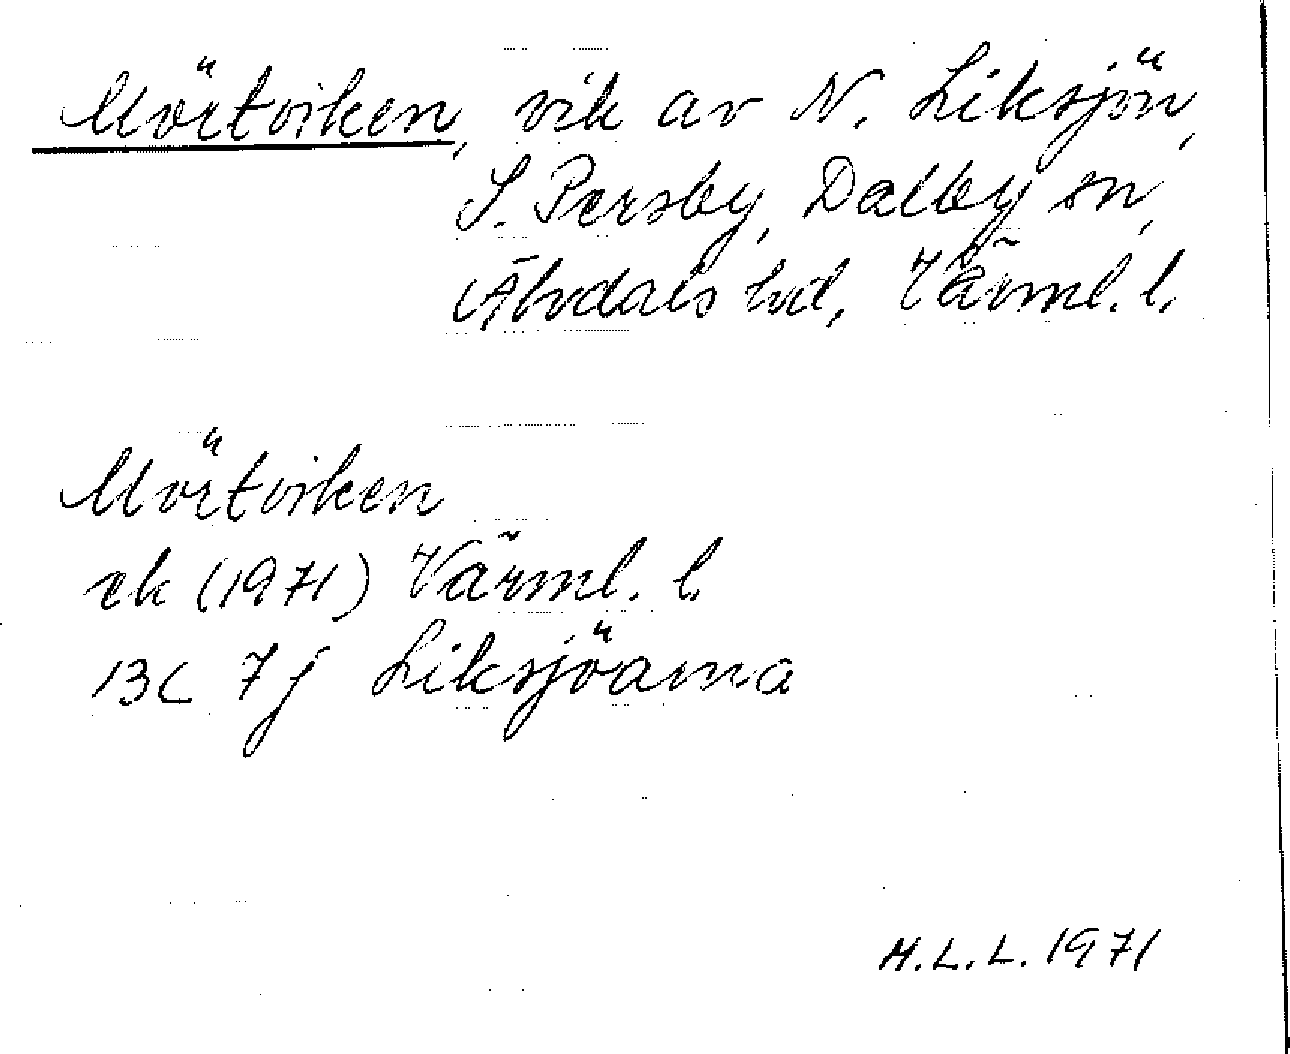 Mörtviken, vik av N. Liksjön,
S. Persby, Dalby sn,
Älvdals hd, Värml. l.
Mörtviken
ek (1971) Värml. l.
13C 7j Liksjöarna
M.L.L. 1971